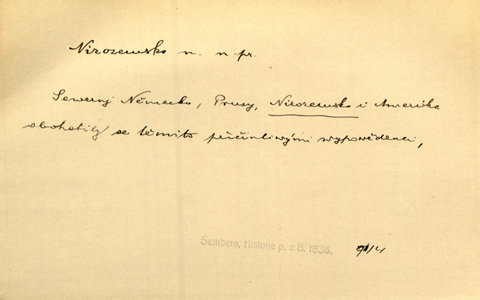 Nizozemsko n. n. pr.
Severnj Německo, Prusy, Nizozemsko i Amerika
obohatily se těmito přičinliwými wypowědenci,
Sembera, Historie p. z B. 1838.